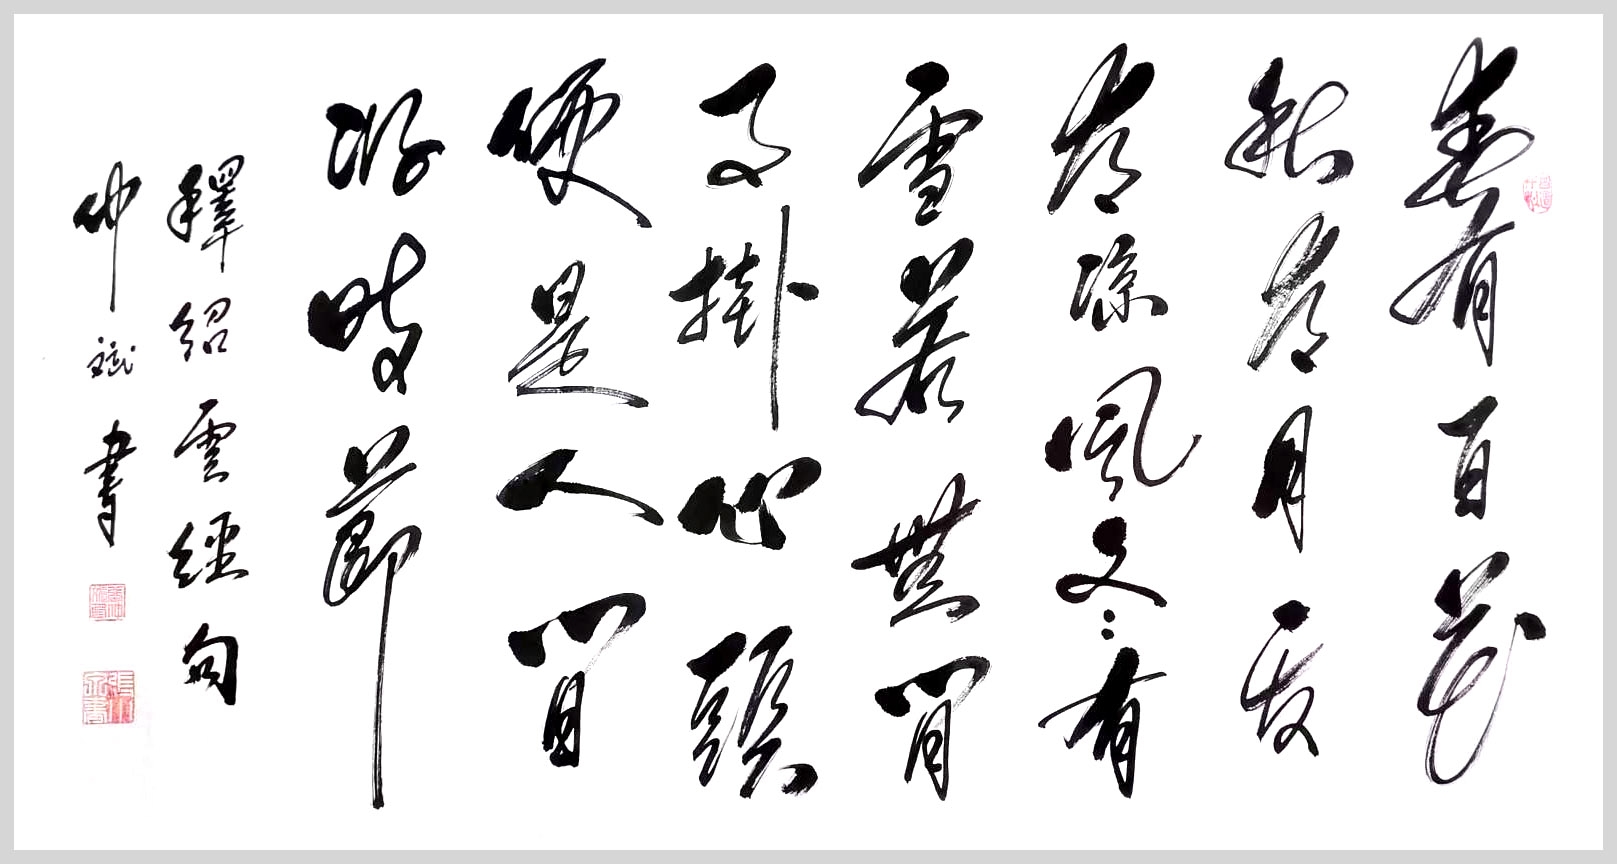 春有百花
秋有月夏
有凉風冬有
雪若無閒
事掛心頭
便是人間
好時節
釋紹雲經句
仲斌書